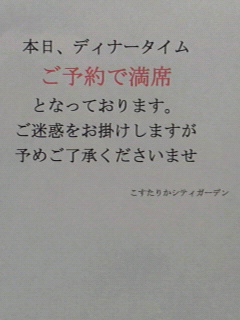 本日、ディナータイム
ご予約で満席
となっております。
ご迷惑をお掛けしますが
予めご了承くださいませ
こすたりかシティガーデン